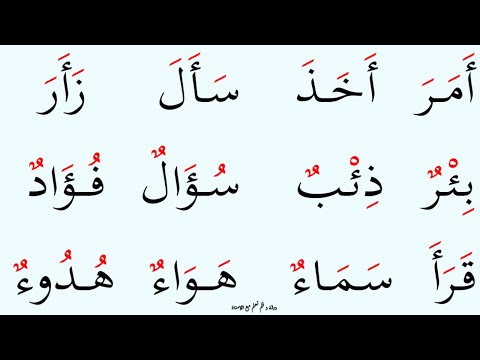 أَمَرَ أَخَذَ سَأَلَ زَأَرَ
بِئْرٌ ذِئْبٌ سُؤَالٌ فُؤَادٌ
قَرَأَ سَمَاءٌ هَوَاءٌ هُدُوءٌ